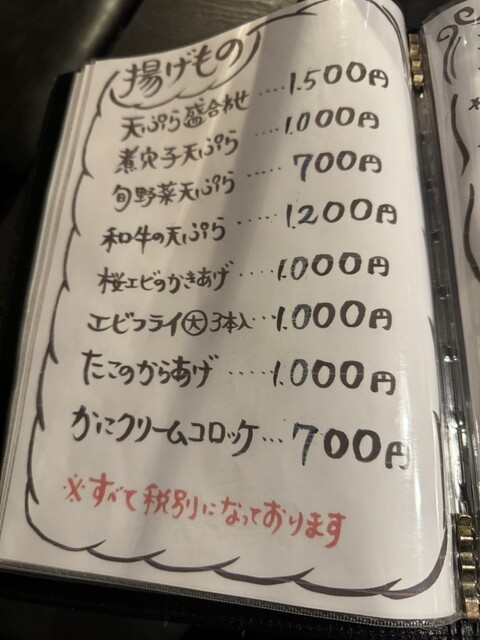 揚げもの
天ぷら盛合わせ ‥‥1.500円
煮穴子天ぷら ‥‥1.000円
旬野菜天ぷら ‥‥‥700円
和牛の天ぷら ‥‥‥1.200円
桜エビのかきあげ ‥‥1.000円
エビフライ㊛3本入‥‥1.000円
たこのからあげ ‥‥‥1.000円
かにクリームコロッケ…700円
※すべて税別になっております